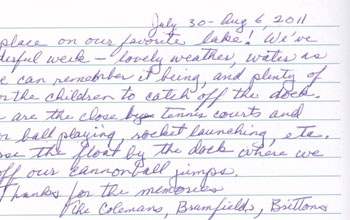 July 30 - Aug 6, 2011
place on our favorite lake! We've
derful week - lovely weather, water as
e can remember it being, and plenty of
r the children to catch off the dock.
are the close by tennis courts and
r ball playing, rocket launching, etc.
se the float by the dock where we
off our cannonball jumps.
Thanks for the memories
The Colemans, Bramfields, Brittons